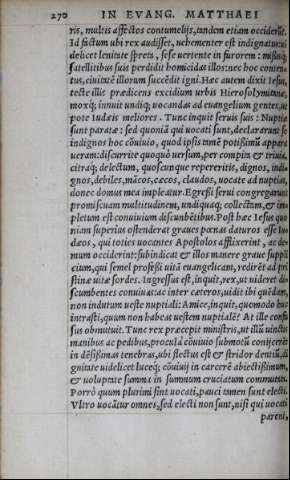 270 IN EVANG. MATTHAEI
ris, multis affectos contumelijs, tandem etiam occiderũt.
Id factum ubi rex audisset, uehementer est indignatus: ui
delicet lenitate spreta, sese uertente in furorem: missisq́;
satellitibus suis perdidit homicidas illos: nec hoc conten
tus, ciuitatẽ illorum succẽdit igni. Hæc autem dixit Iesus,
tecte illis prædicens excidium urbis Hierosolymitanæ,
moxq́; innuit undiq́; uocandas ad euangelium gentes, ut
pote Iudæis meliores. Tunc inquit seruis suis: Nuptiæ
sunt paratæ: sed quoniã qui uocati sunt, declararunt se
indignos hoc cõuiuio, quod ipsis tamẽ potissimũ appara
ueram: discurrite quoquò uersum, per compita & triuia,
citraq́; delectum, quoscunque repereritis, dignos, indi=
gnos, debiles, mãcos, cæcos, claudos, uocate ad nuptias,
donec domus mea impleatur. Egressi serui congregarunt
promiscuam multitudinem, undiquaq́; collectam, & im
pletum est conuiuium discũbẽtibus. Post hæc Iesus quo
niam superius ostenderat graues pœnas daturos esse Iu=
dæos, qui toties uocantes Apostolos afflixerint, ac de=
mum occiderint: subindicat & illos manere graue suppli
cium, qui semel professi uitã euangelicam, redirẽt ad pri
stinæ uitæ sordes. Ingressus est, inquit, rex, ut uideret di=
scumbentes conuiuas: ac inter cæteros, uidit ibi quẽdam,
non indutum ueste nuptiali: Amice, inquit, quomodo huc
intrasti, quum non habeas uestem nuptialẽ? At ille confu
sus obmutuit. Tunc rex præcepit ministris, ut illũ uinctis
manibus ac pedibus, procul à cõuiuio submotũ conijcerẽt
in dẽsissimas tenebras, ubi fletus est & stridor dentiũ, di
gnitate uidelicet luceq́; cõuiuij in carcerẽ abiectissimum,
& uoluptate summa in summum cruciatum commutatis.
Porrò quum plurimi sint uocati, pauci tamen sunt electi.
Vltro uocãtur omnes, sed electi non sunt, nisi qui uocati
parent,